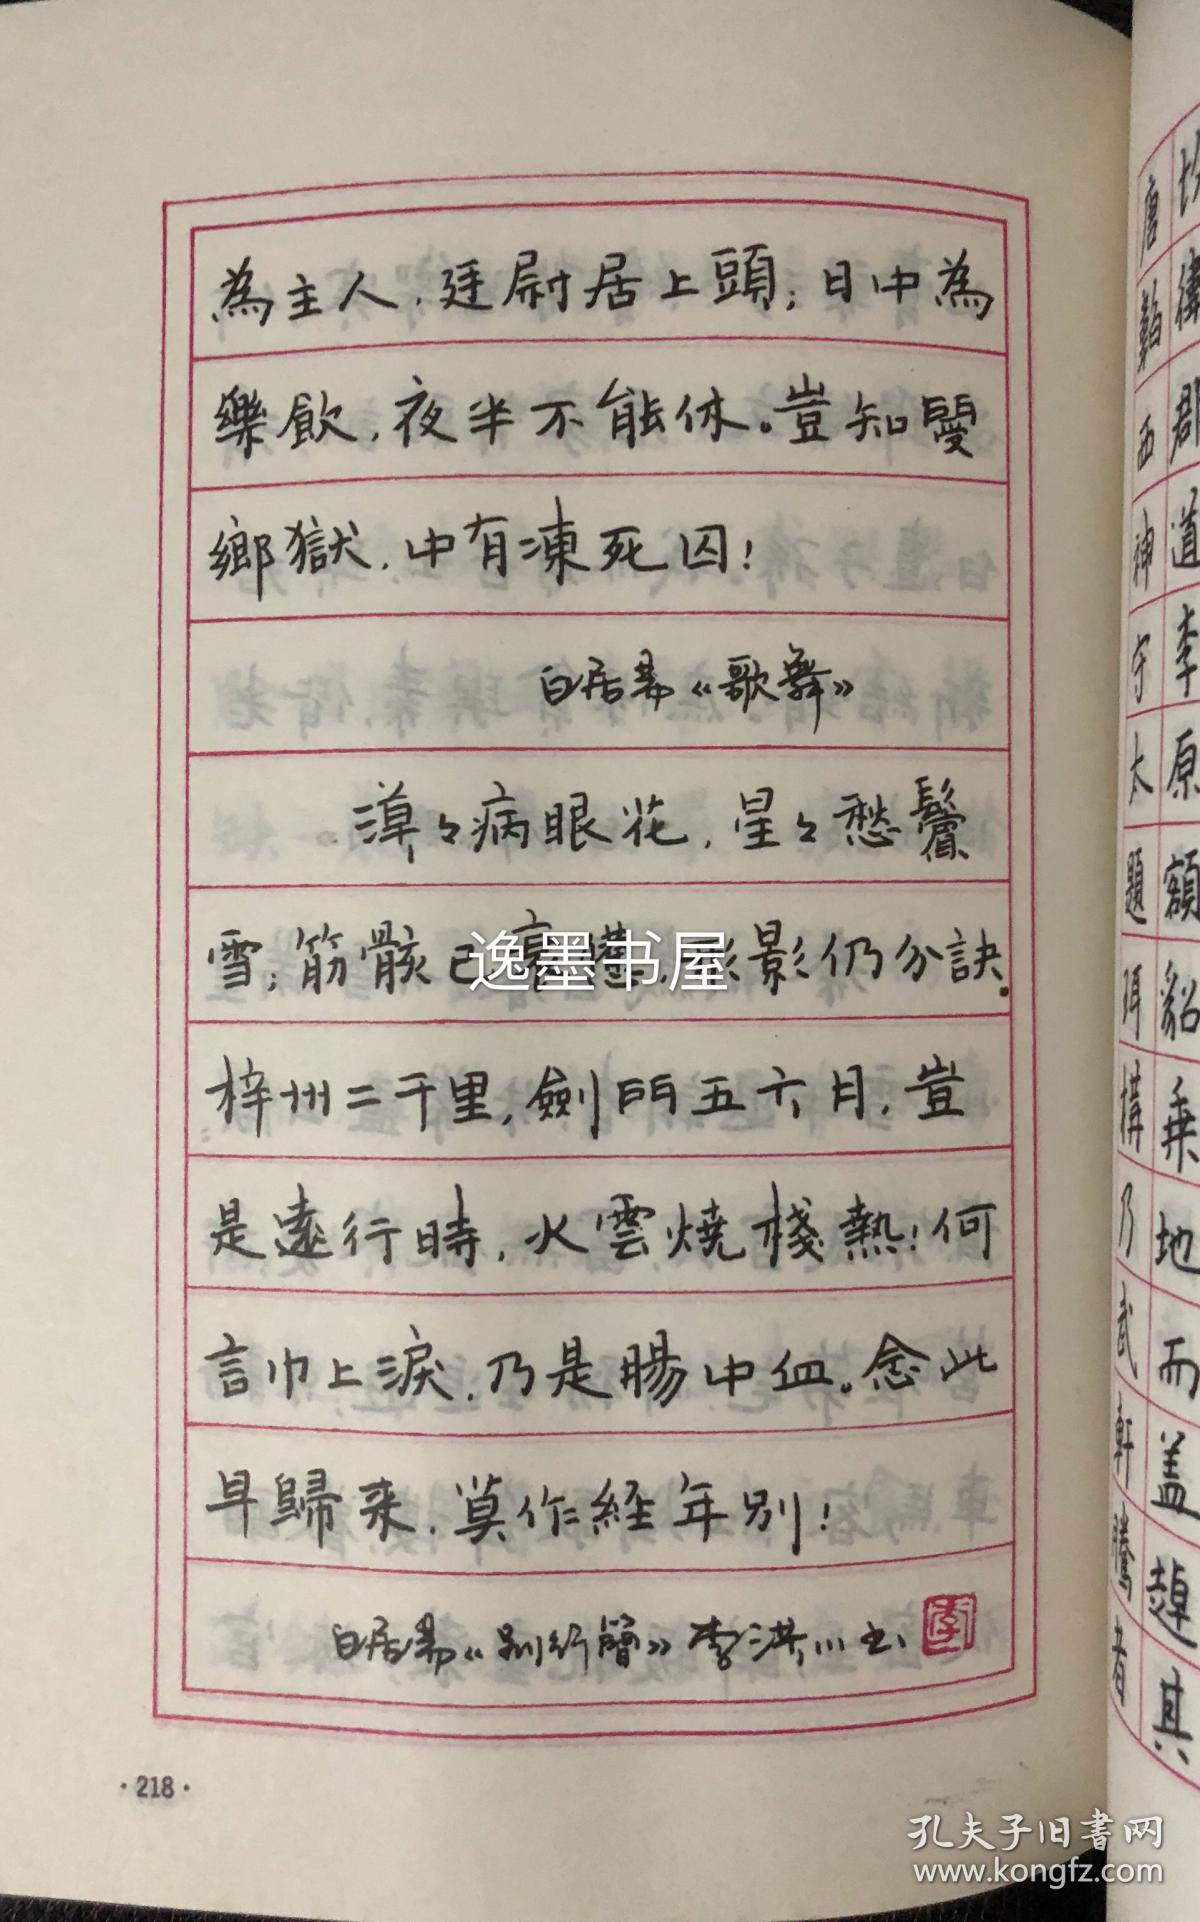 為主人，廷尉居上頭；日中為
樂飲，夜半不能休。豈知閿
鄉獄，中有凍死囚！
白居易《歌舞》
漠々病眼花，星々愁鬢
雪；筋骸已衰憊，形影仍分訣。
梓州二千里，劍門五六月，豈
是遠行時，火雲燒棧熱！何
言巾上淚，乃是腸中血。念此
早歸来，莫作經年别！
白居易《别行簡》李洪川书
李
·218·
逸墨书屋
唐
西神守太題
乃武軒騰者
郡道李原額
乗地而盖趠其
孔夫子旧書网
www.kongfz.com